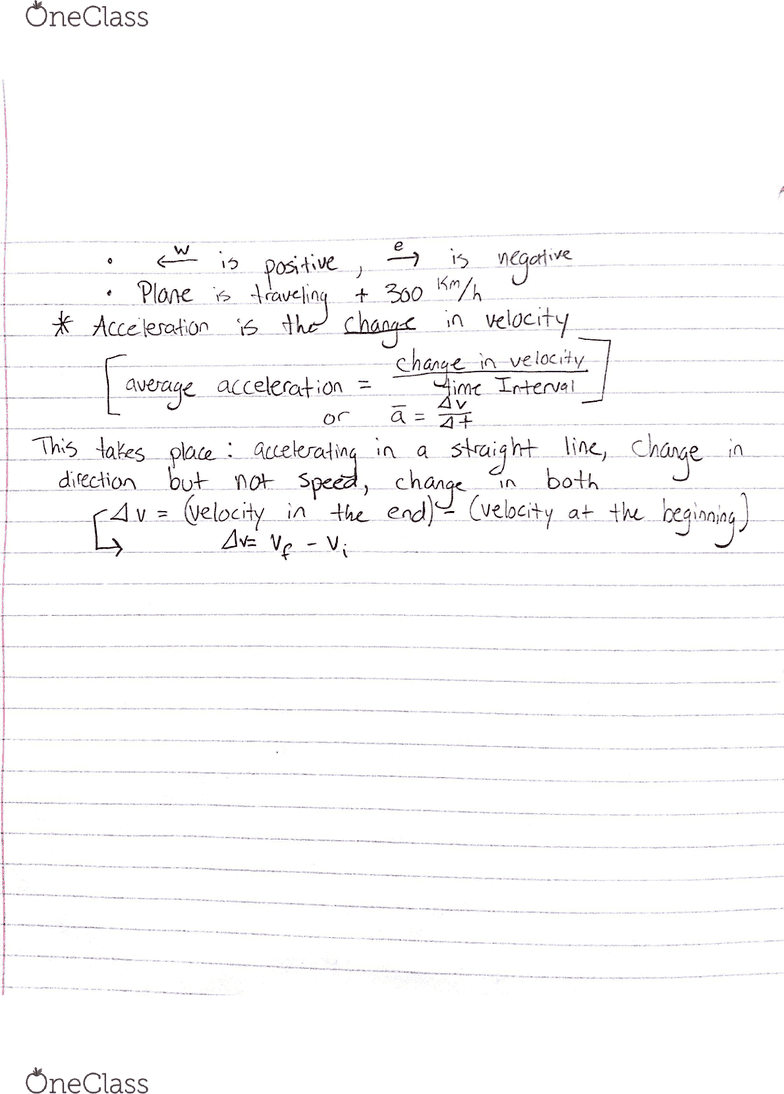 OneClass
• ←w is positive, e→ is negative
• Plane is traveling + 300 Km/h
* Acceleration is the change in velocity
[average acceleration = change in velocity / Time Interval]
or ā = Δv/Δt
This takes place: accelerating in a straight line, change in
direction but not speed, change in both
Δv = (velocity in the end) - (velocity at the beginning)
↳ Δv= Vf - Vi
OneClass